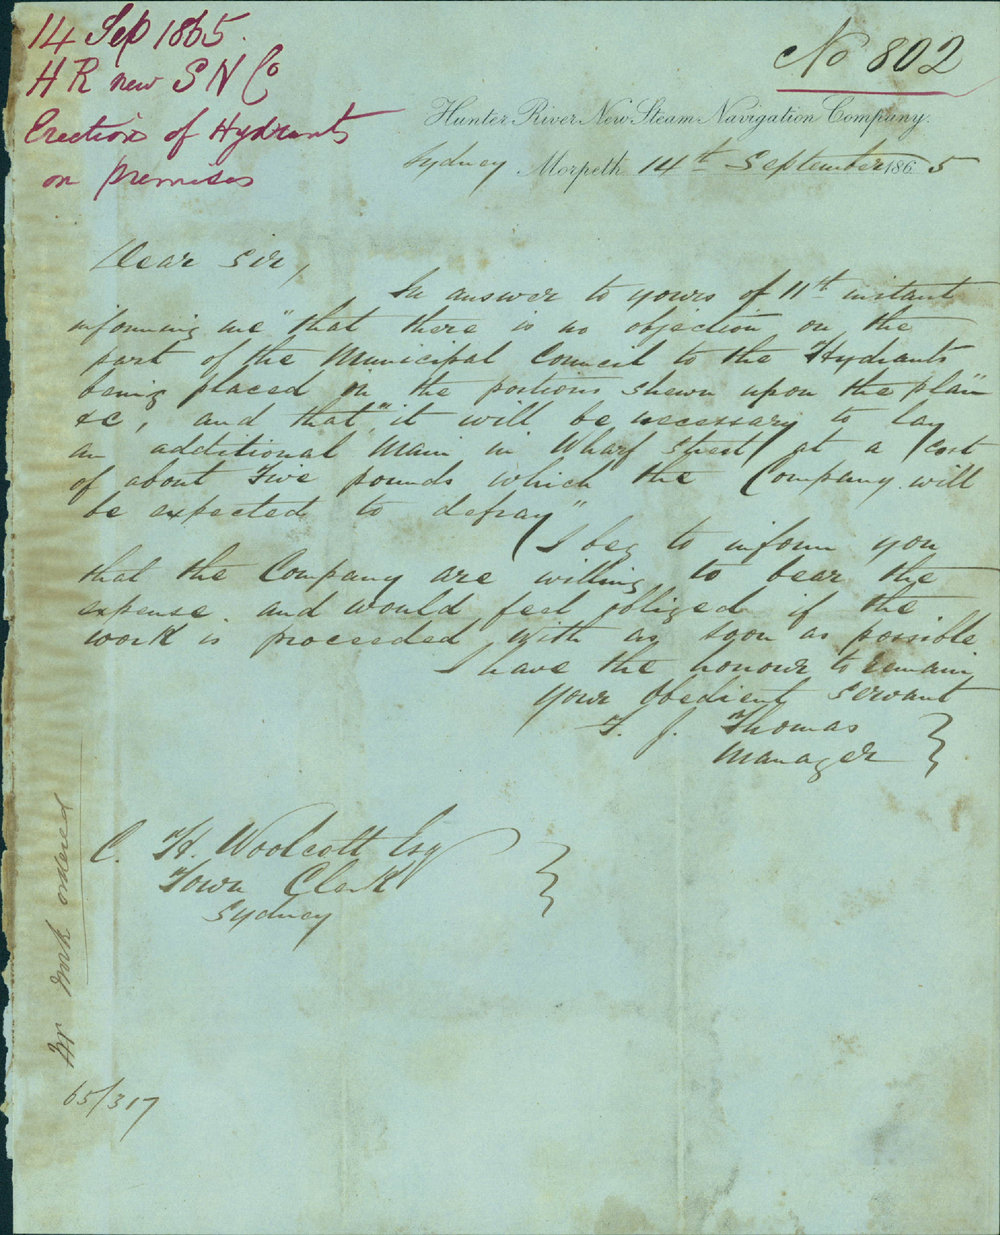 14 Sep 1865.
H R new S N Co
Erection of Hydrants
on premises
No 802
Hunter River New Steam Navigation Company.
Sydney Morpeth 14th September 1865
Dear Sir,
In answer to yours of 11th instant
informing me "that there is no objection on the
part of the Municipal Council to the Hydrants
being placed in the portions shewn upon the plan"
&c, and that, "it will be necessary to lay
an additional Main in Wharf Street at a cost
of about Five pounds which the Company will
be expected to defray"
I beg to inform you
that the Company are willing to bear the
expense and would feel obliged if the
work is proceeded with as soon as possible
I have the honour to remain
Your Obedient Servant
F. J. Thomas
Manager
C. H. Woolcott Esq
Town Clerk
Sydney
work ordered
65/317